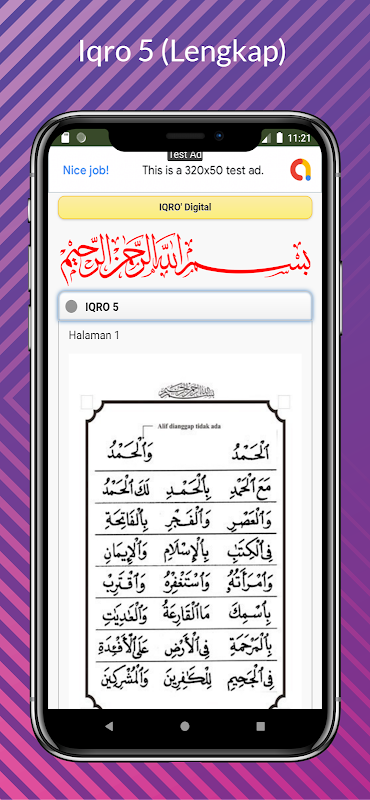 Iqro 5 (Lengkap)
11:21
Test Ad
Nice job! This is a 320x50 test ad.
IQRO' Digital
بِسْمِ اللَّهِ الرَّحْمَنِ الرَّحِيمِ
IQRO 5
Halaman 1
بِسْمِ اللَّهِ الرَّحْمَنِ الرَّحِيمِ
Alif dianggap tidak ada
اَلْحَمْدُ وَالْحَمْدُ
مَعَ الْحَمْدِ بِالْحَمْدِ لَكَ الْحَمْدُ
وَالْعَصْرِ وَالْفَجْرِ بِالْفَاتِحَةِ
فِى الْكِتٰبِ بِالْإِسْلَامِ وَالْإِيمَانِ
وَامْرَأَتُهُ وَاسْتَغْفِرْهُ وَاقْتَرِبْ
بِاسْمِكَ مَاالْقَارِعَةُ وَالْعٰدِيٰتِ
بِالْمَرْحَمَةِ فِى الْأَرْضِ عَلَى الْأَفْئِدَةِ
فِى الْجَحِيمِ لِلْكَافِرِينَ وَالْمُشْرِكِينَ